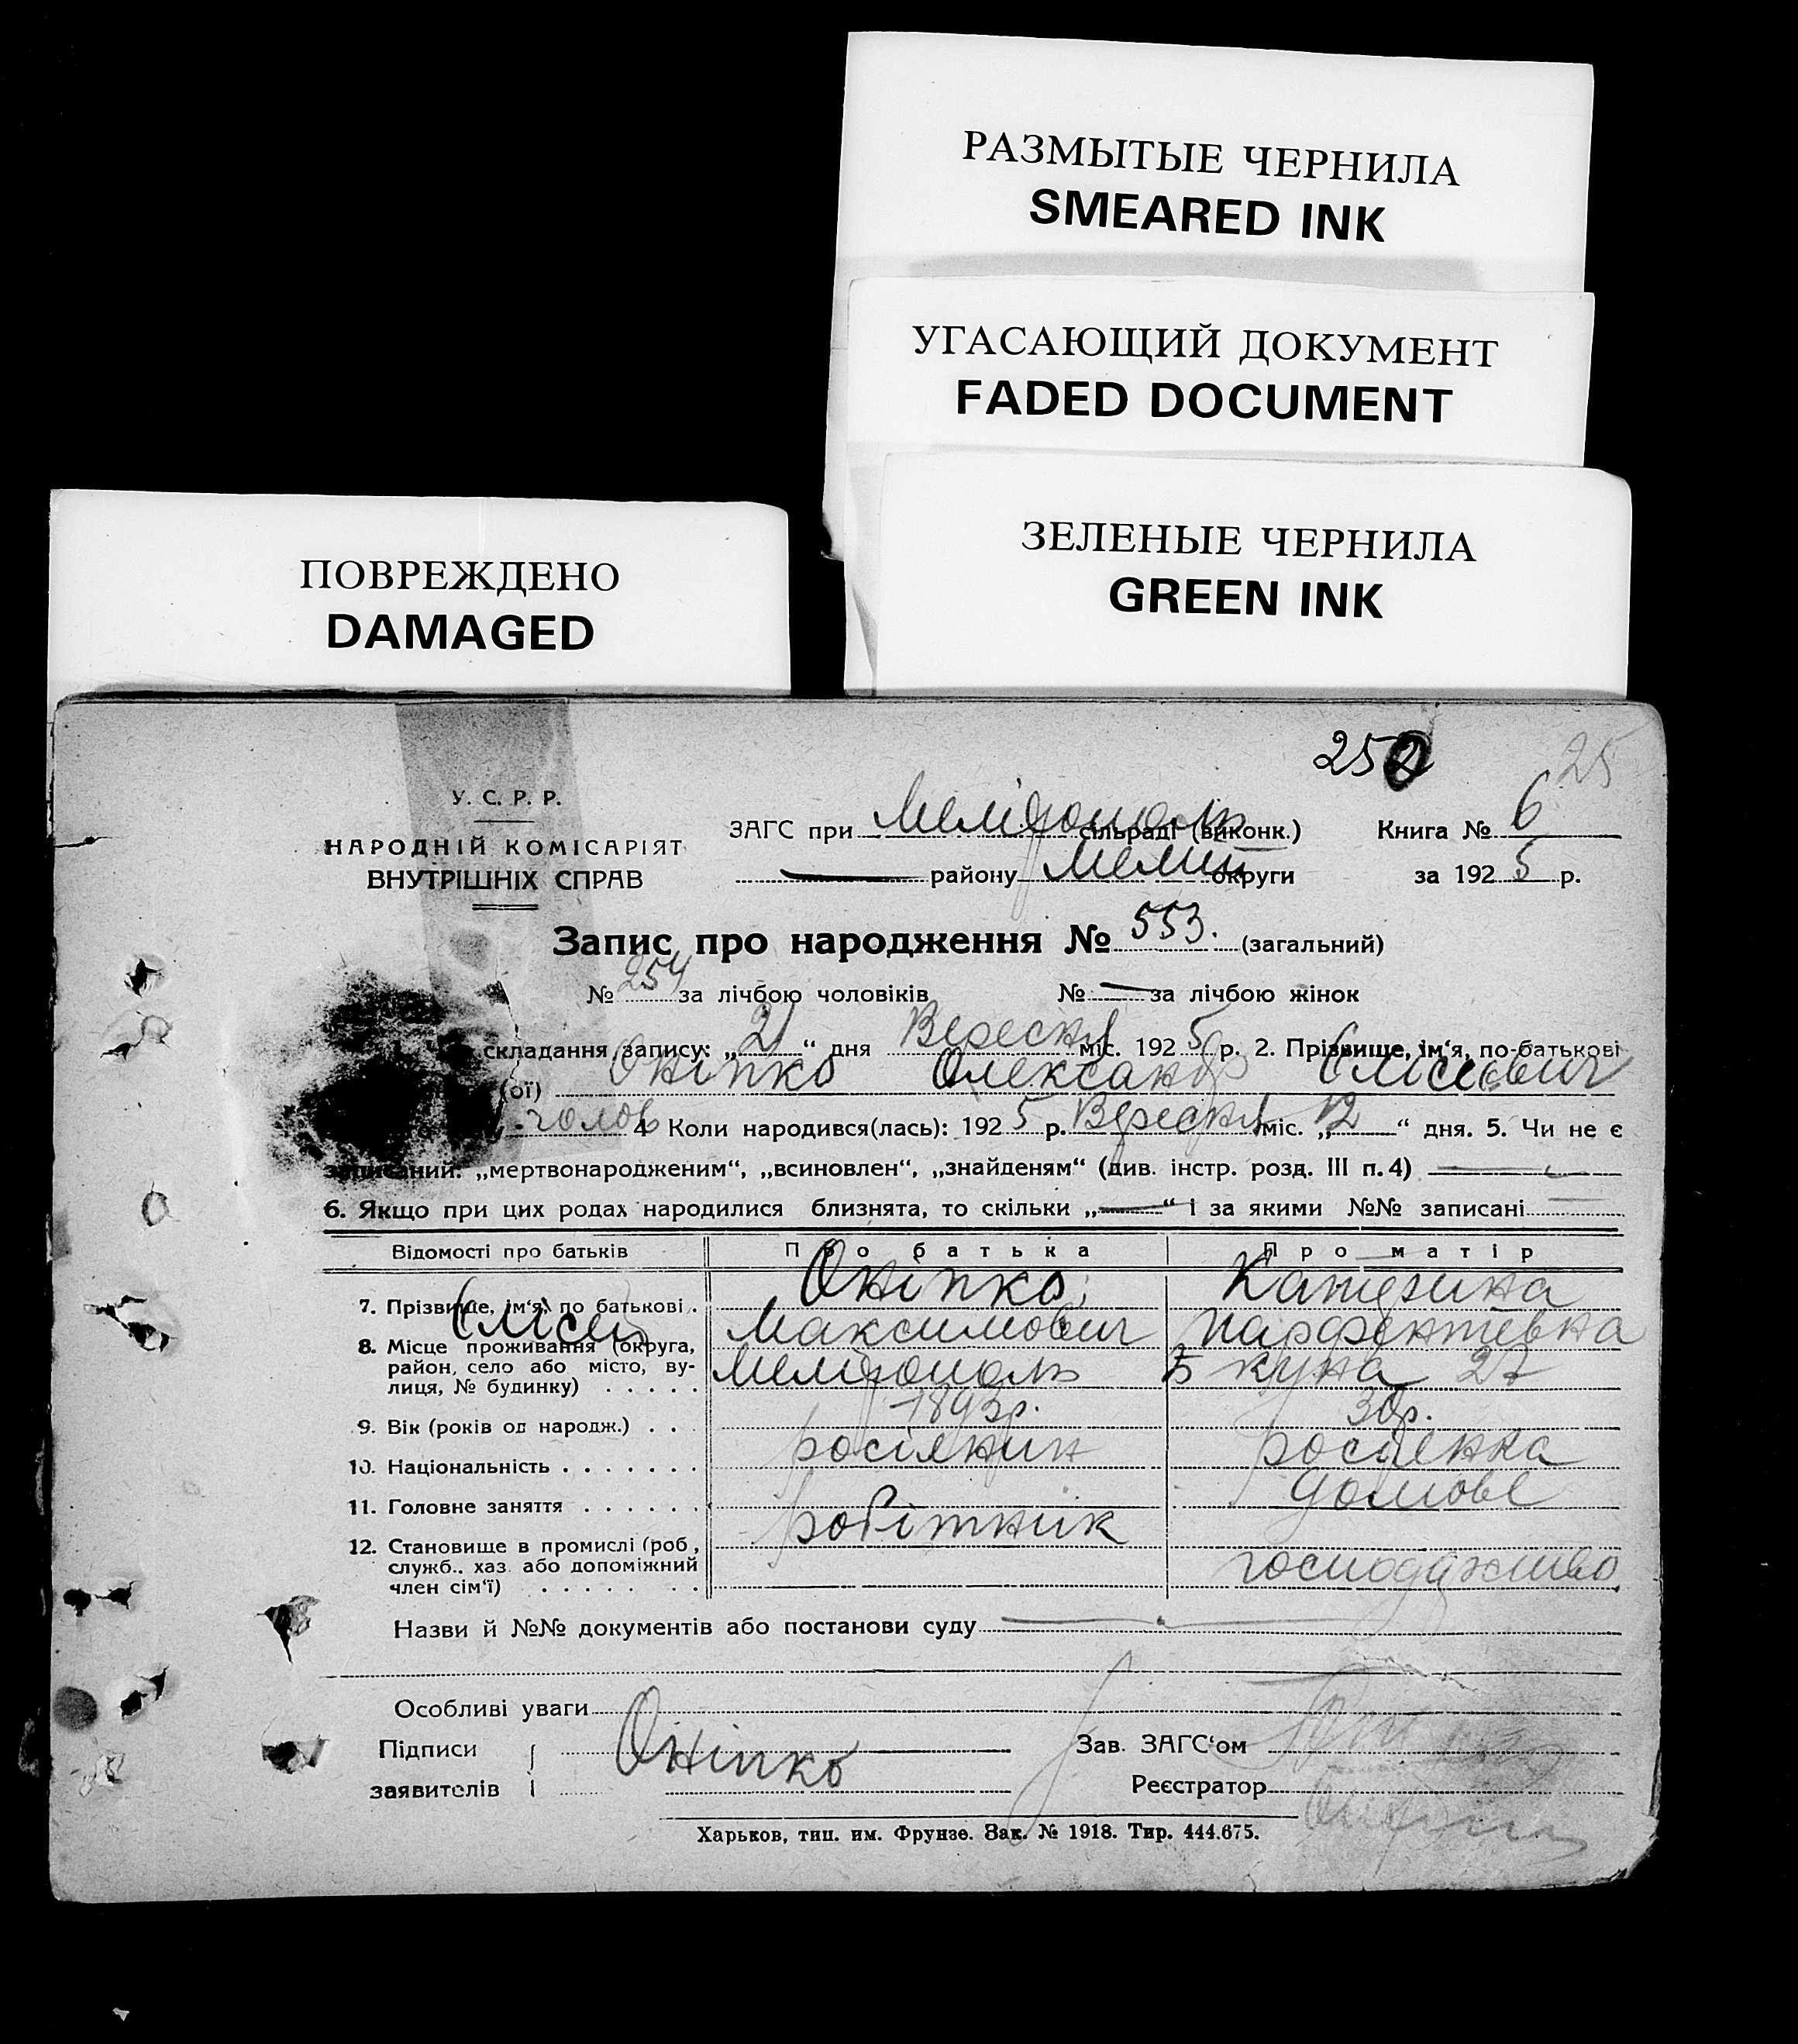 РАЗМЫТЫЕ ЧЕРНИЛА
SMEARED INK
УГАСАЮЩИЙ ДОКУМЕНТ
FADED DOCUMENT
ЗЕЛЕНЫЕ ЧЕРНИЛА
GREEN INK
ПОВРЕЖДЕНО
DAMAGED
25
У. С. Р. Р.
НАРОДНІЙ КОМІСАРІЯТ
ВНУТРІШНІХ СПРАВ
ЗАГС при Мелітополь сільраді (виконк.) Книга № 6
району Меліт округи за 1925 р.
Запис про народження № 553. (загальний)
№ 254 за лічбою чоловіків № — за лічбою жінок
складання запису: „21“ дня Вересня міс. 1925 р. 2. Прізвище, ім'я, по-батькові
(ої) Оніпко Олександр Єлісеєвич
чолов 4 Коли народився(лась): 1925 р. Вересня міс. „12“ дня. 5. Чи не є
записаний: „мертвонародженим“, „всиновлен“, „знайденям“ (див. інстр. розд. III п. 4) —
6. Якщо при цих родах народилися близнята, то скільки „—“ і за якими №№ записані —
Відомості про батьків Про батька Про матір
7. Прізвище, ім'я, по батькові . Оніпко Катерина
Єлісей Максимович Парфентевна
8. Місце проживання (округа,
район, село або місто, ву-
лиця, № будинку) . . . . . Мелітополь Куна 27
9. Вік (років од народж.) . . . 1893р. 30р.
10. Національність . . . . . . . росіянин росіянка
11. Головне заняття . . . . . . робітник домове
12. Становище в промислі (роб,
служб., хаз. або допоміжний
член сім'ї) . . . . . . . господарство
Назви й №№ документів або постанови суду —
Особливі уваги
Підписи
заявителів Оніпко
Зав. ЗАГС'ом
Реєстратор
Харьков, тип. им. Фрунзе. Зак. № 1918. Тир. 444.675.